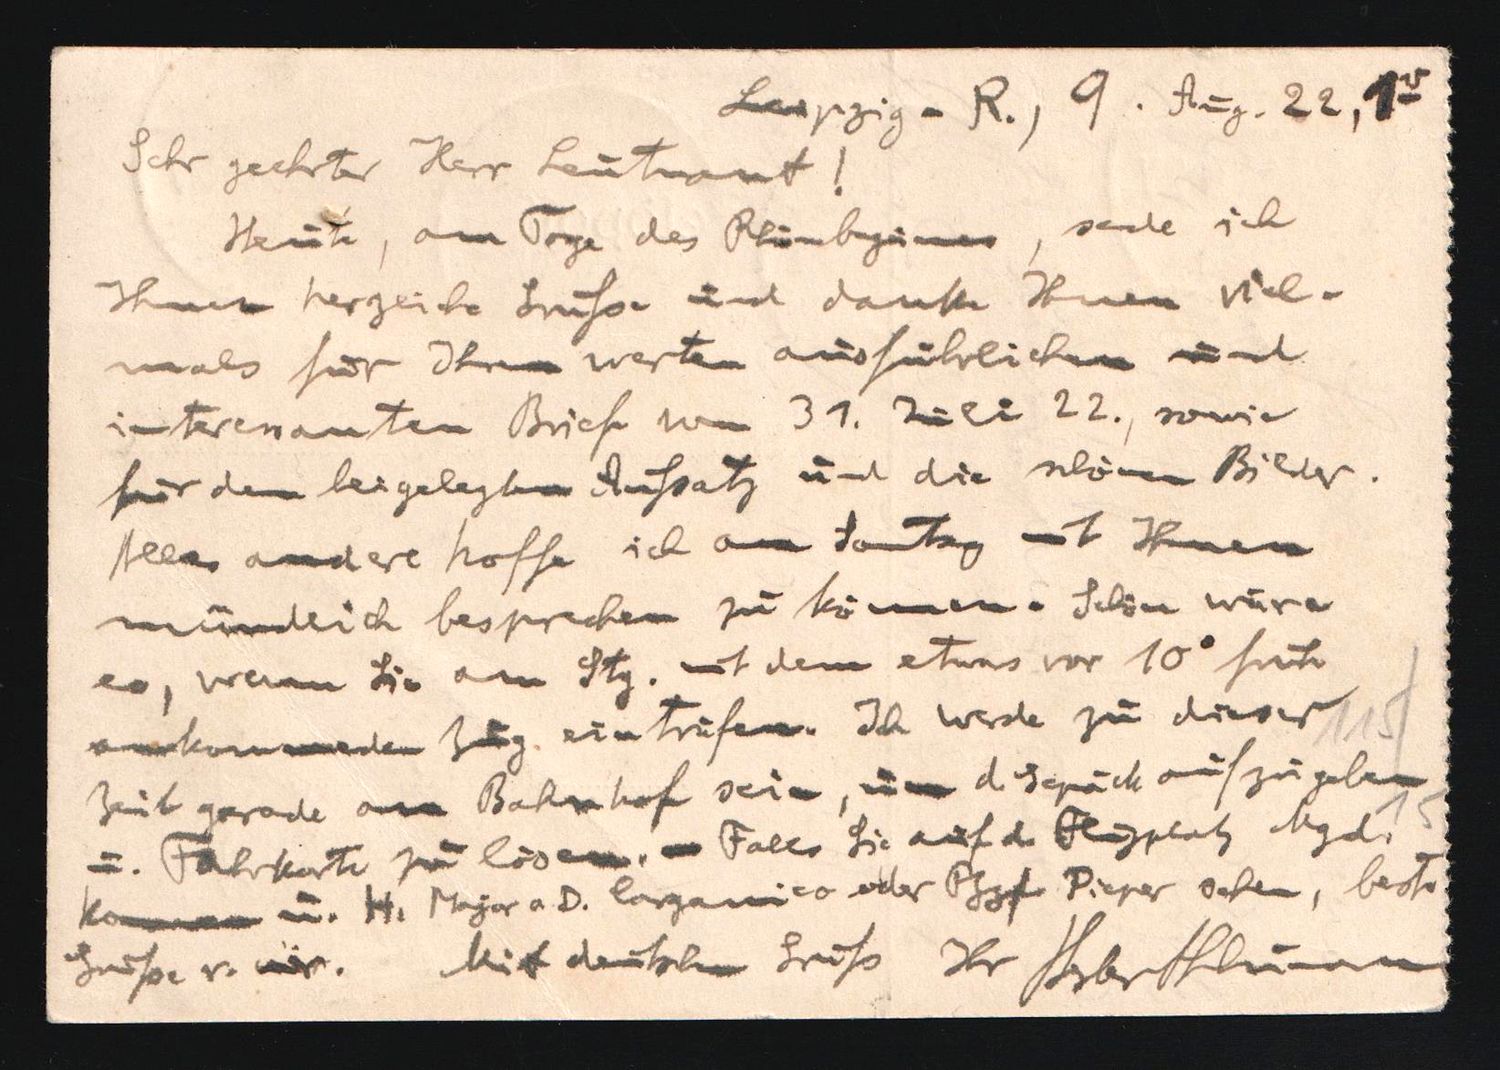 Leipzig - R., 9. Aug. 22, 1
Sehr geehrter Herr Leutnant!
Heute, am Tage des Rhönbeginnes, sende ich
Ihnen herzliche Grüße und danke Ihnen viel-
mals für Ihren werten ausführlichen und
interessanten Brief vom 31. Juli 22., sowie
für den beigelegten Aufsatz und die schönen Bilder.
Alles andere hoffe ich am Sonntag mit Ihnen
mündlich besprechen zu können. Schön wäre
es, wenn Sie am Stg. mit dem etwas vor 10° früh
ankommenden Zug eintrüfen. Ich werde zu dieser
Zeit gerade am Bahnhof sein, um d. Gepäck aufzugeben
u. Fahrkarte zu lösen. - Falls Sie auf d. Flugplatz Mgd.
kommen u. H. Major a. D. oder Pieper sehen, beste
Grüße v. mir. Mit deutschem Gruß Ihr
115
15